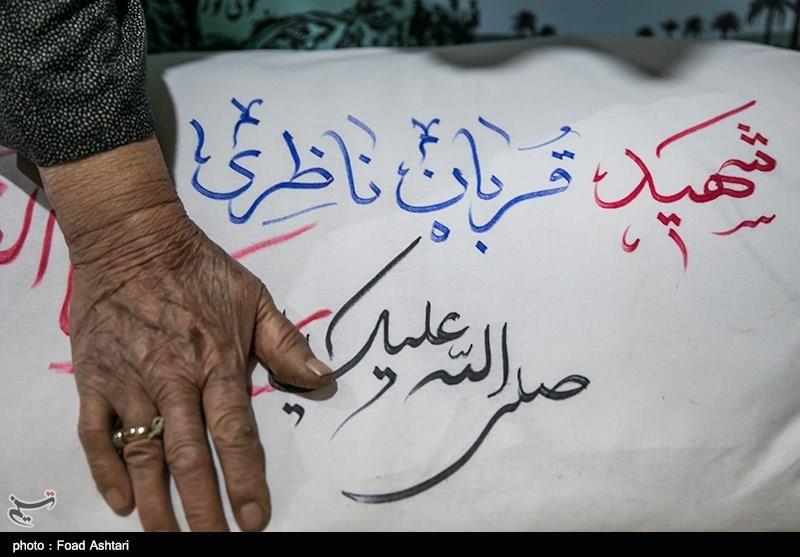 شهید قربان ناظری
صلی الله علیک یا
photo : Foad Ashtari